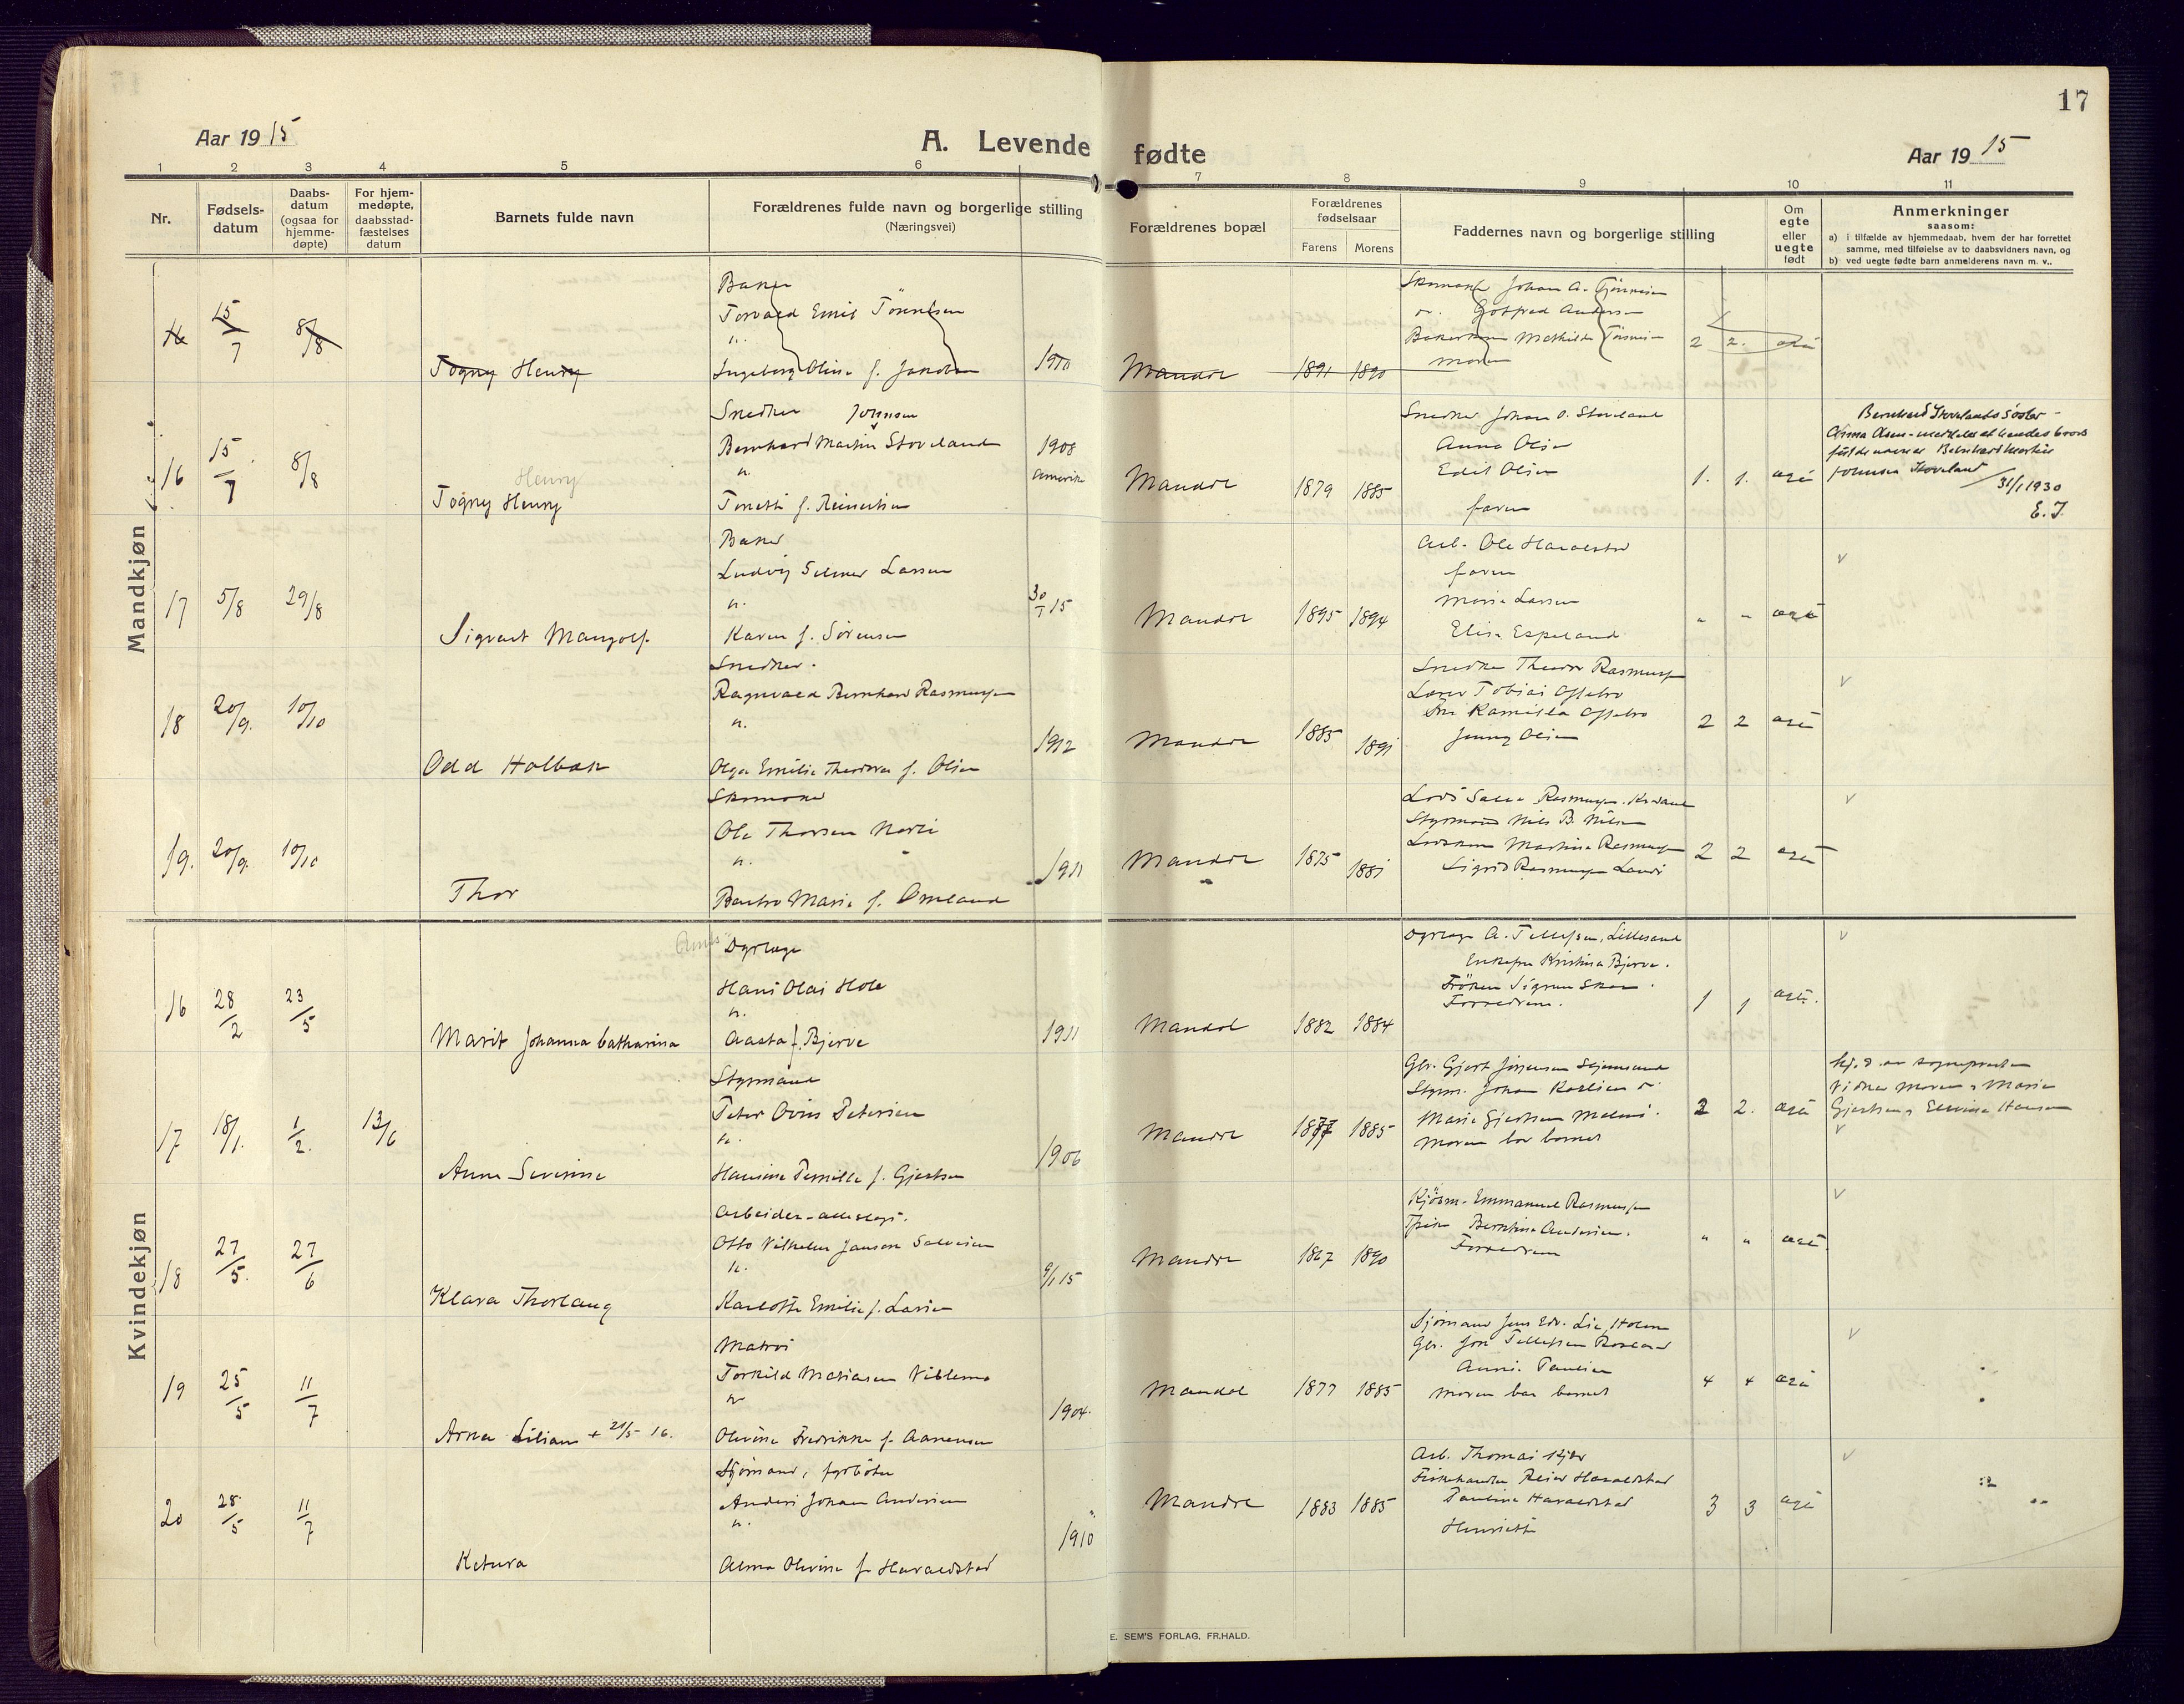 17
Aar 1915
A. Levende fødte
Aar 1915
1 2 3 4 5 6 7 8 9 10 11
Nr.
Fødsels-
datum
Daabs-
datum
(ogsaa for
hjemme-
døpte)
For hjem-
medøpte,
daabsstad-
fæstelses
datum
Barnets fulde navn
Forældrenes fulde navn og borgerlige stilling
(Næringsvei)
Forældrenes bopæl
Forældrenes
fødselsaar
Farens Morens
Faddernes navn og borgerlige stilling
Om
egte
eller
uegte
født
Anmerkninger
saasom:
a) i tilfælde av hjemmedaab, hvem der har forrettet
samme, med tilføielse av to daabsvidners navn, og
b) ved uegte fødte barn anmelderens navn m. v..
Mandkjøn
16 15/7 8/8
Togny Henry
Baker
Torvald Emil Tönnesen
Ingeborg Oline f. Jakobsen
1910
Mandal 1891 1890
Johan A.
Gotfred Andersen
Mathilde
moren
2 2.
16 15/7 8/8
Henry
Togny Henry
Snedker Johnsen
Bernhard Martin Stoveland
u.
Tonette f. Reinertsen
1908
Amerika
Mandal 1879 1885
Snedker Johan O. Stoveland
Anna Olsen
Edit Olsen
faren
1. 1. egte
Bernhard Stovelands søster -
Anna Olsen - meddeler at hendes brors
fulde navn er Bernhard Martin
Johnsen Stoveland
31/1 1930
E. J.
17 5/8 29/8
Sigvart Mangolf.
Baker
Ludvig Selmer Larsen
u.
Karen f. Sörensen
30/1 15
Mandal 1895 1894
Arb. Ole Haraldstad
faren
Marie Larsen
Elisa Espeland
" " egte
18 20/9. 10/10
Odd Holbæk
Snedker.
Ragnvald Bernhard Rasmussen
u.
Olga Emilie Theodora f. Olsen
1912
Mandal 1885 1891
Snedker Theodor Rasmussen
Tobias
Kamilla
Jenny Olsen
2 2 egte
19. 20/9. 10/10
Thor
Skomaker
Ole Thorsen
u.
Marie f. Omland
1911
Mandal 1875 1881
Lods Rasmussen
Styrmand Nils B. Nilsen
Martine Rasmussen
Sigrid Rasmussen
2 2 egte
Kvindekjøn
16 28/2 23/5
Marit Johanna Catharina
Dyrlæge
Hans Olai Hole
u.
Aasta f. Bjerve
1911
Mandal 1882 1884
Dyrlæge A. Tellefsen, Lillesand
Enkefru Kristina Bjerve.
Fröken Sigrun
Forældrene.
1 1 egte.
17 18/1. 1/2. 13/6
Anna Severine
Styrmand
Peter Petersen
u.
Hansine Pernille f. Gjertsen
1906
Mandal 1877 1885
Gbr. Gjert Jörgensen
Styrm. Johan Karlsen
Marie Gjertsen
Moren bar barnet
2 2. egte
hj. d. av sognepresten
Vidner Moren, Marie
Gjertsen, Hansen
18 27/5. 27/6
Klara Thorlaug
Arbeider
Otto Vilhelm Jansen Salvesen
u.
Karlotte Emilie f. Larsen
9/1 15
Mandal 1867 1890
Emmanuel Rasmussen
Bernhine Andersen.
Forældrene
" " egte.
19 25/5 11/7
Arna Lilian + 21/5 16.
Matros
Torkild Vibleno
u
Olevine Fredrikke f. Aanensen
1904.
Mandal 1877 1885
Sjömand Jens Edv. Lie, Holum
Gbr. Tellefsen
Paulsen
moren bar barnet
4 4 egte
20 28/5 11/7
Ketura
Sjömand, fyrböter
Anders Johan Andersen
u.
Alma Olevine f. Haraldstad
1910
Mandal 1883 1885
Arb. Thomas
Fiskehandler Haraldstad
Pauline Haraldstad
3 3 egte
E. SEM'S FORLAG, FR.HALD.